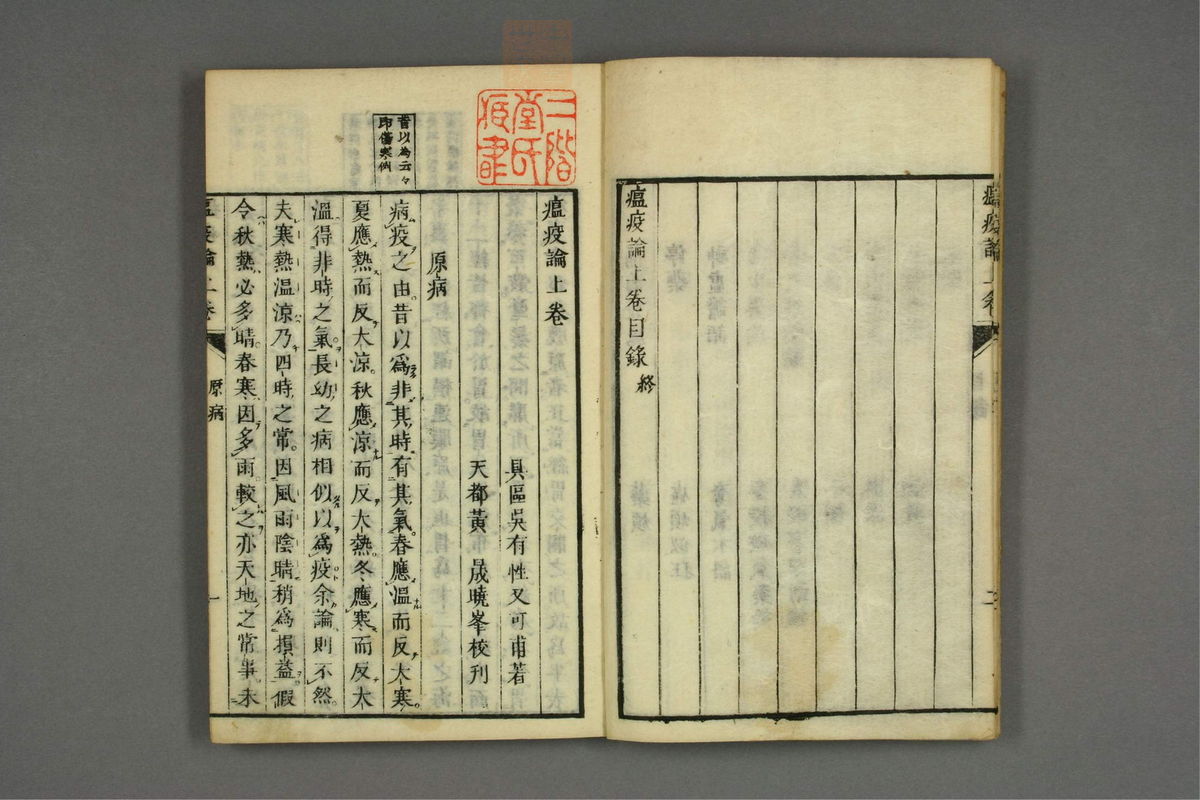 瘟疫論上卷
二
瘟疫論上卷目錄終
二階
堂氏
瘟疫論上卷
具區吳有性又可甫著
天都黃 晟曉峯校刊
原病
昔以為云々
即傷寒例
病疫之由昔以爲非其時有其氣春應溫而反大寒
夏應熱而反大凉秋應凉而反大熱冬應寒而反大
溫得非時之氣長幼之病相似以爲疫余論則不然
夫寒熱溫凉乃四時之常因風雨陰晴稍爲損益假
令秋熱必多晴春寒因多雨較之亦天地之常事未
瘟疫論上卷
原病
一